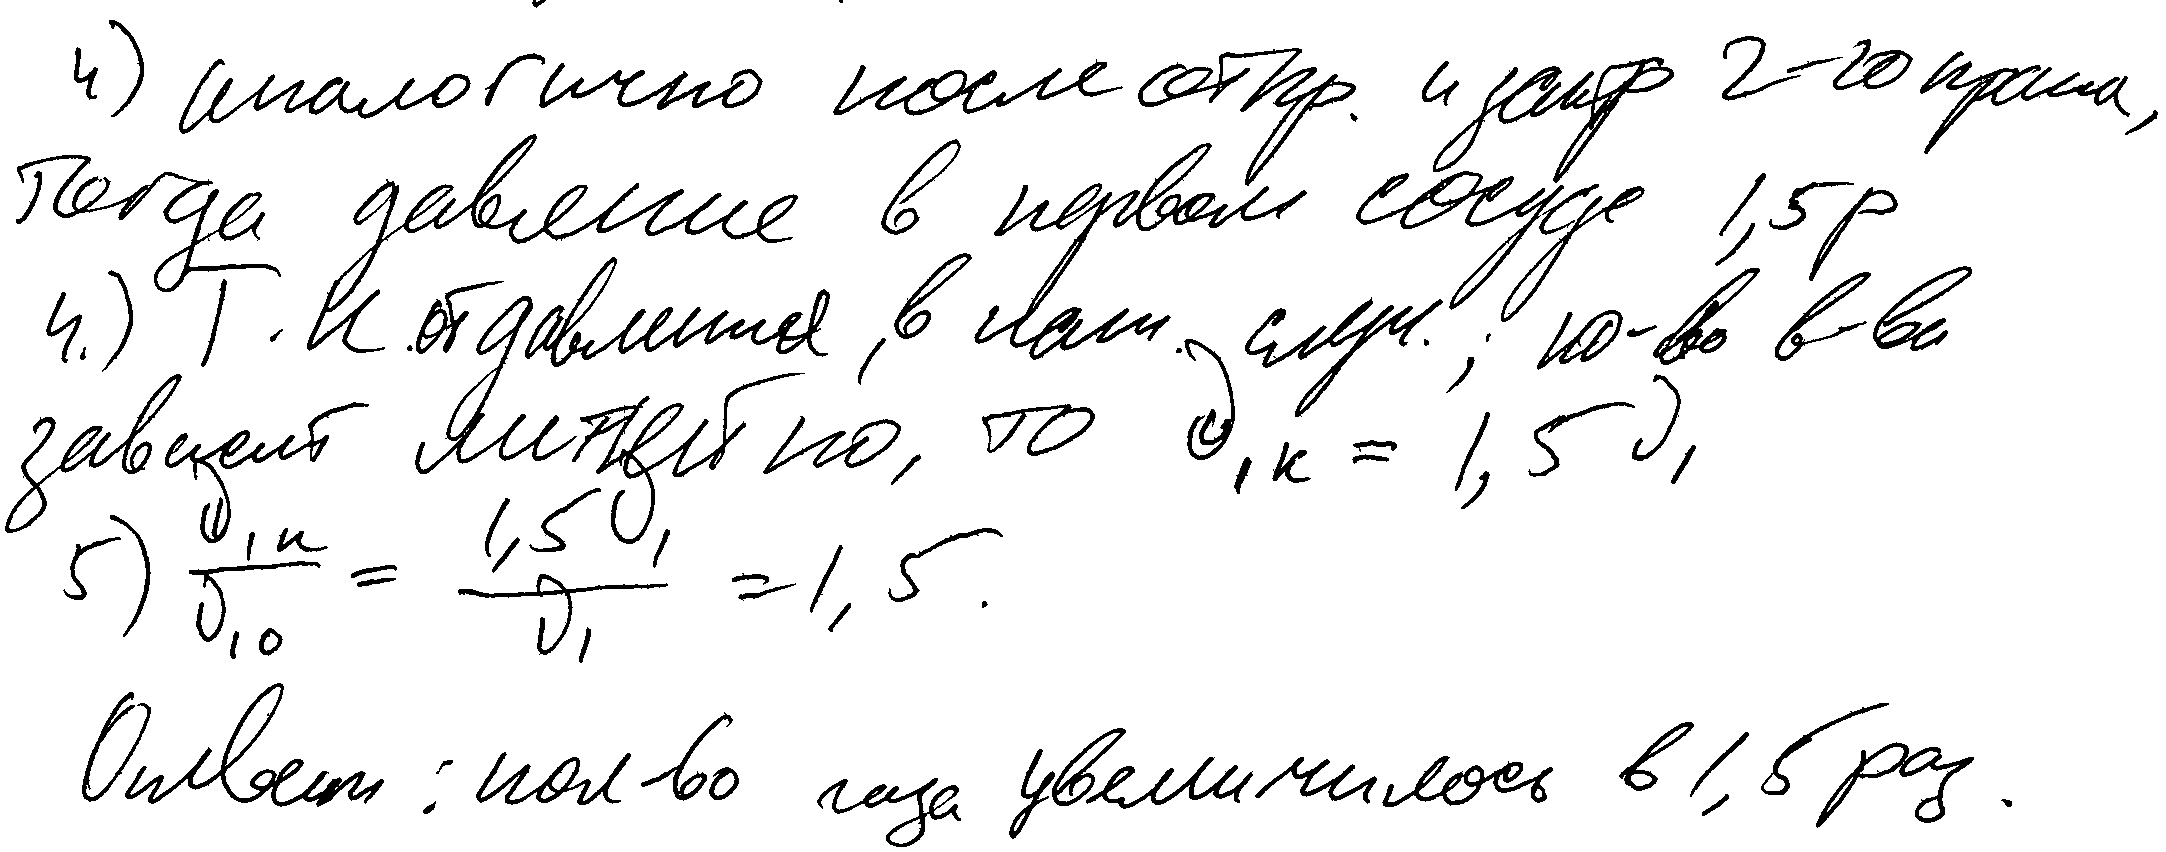 4) аналогично после откр. и закр 2-го крана,
тогда давление в первом сосуде 1,5 p
4.) Т.к от давления, в наш. случ.; ко-во в-ва
зависит линейно, то ν₁к = 1,5 ν₁
5) ν₁к/ν₁₀ = 1,5ν₁/ν₁ = 1,5.
Ответ: кол-во газа увеличилось в 1,5 раз.